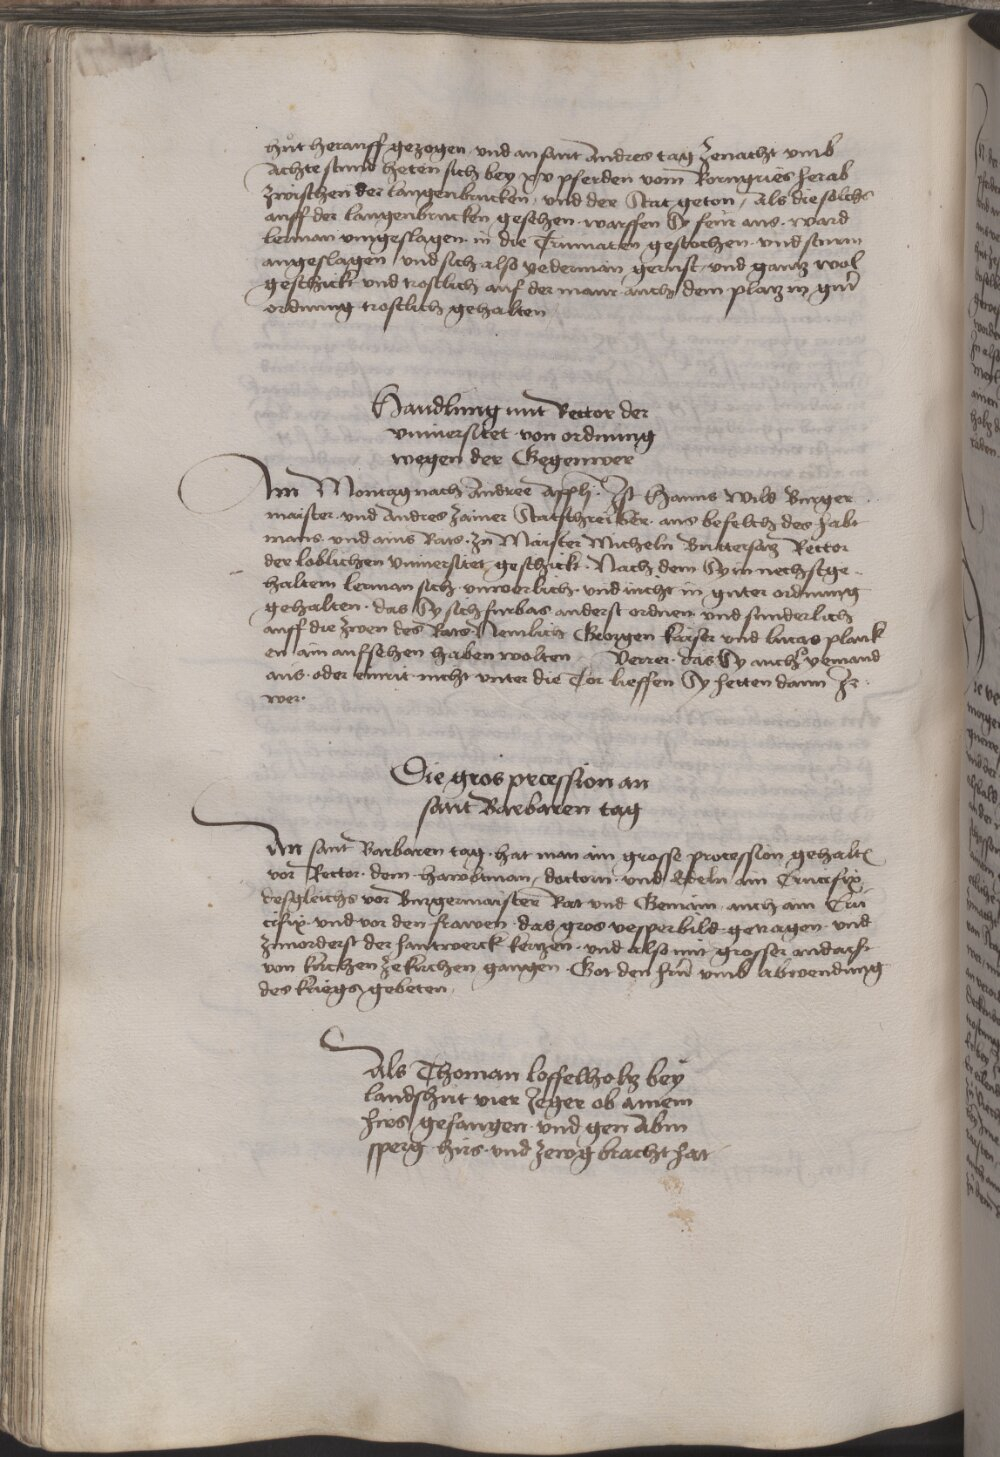 hůt herauff gezogen vnd an sant Andres tag zenacht vmb
Achte stund heten sich bey xv pferden vom Korngries herab
zwischen der langenbrucken, vnd der Stat geton, Als die solchs
auff der langenbrucken gesehen warffen Sy feur aus ward
lerman vmgeslagen in die Trumaten gestochen vnd sturm
angeslagen, vnd sich also yederman gerust, vnd gantz wol
geschickt vnd trostlich auf der maur auch dem platz in guter
ordnung trostlich gehalten
Handlung mit Rector der
vniuersitet von ordnung
wegen der Gegenwer
Am Montag nach Andree Appli Ist Hanns Wild Burger
maister vnd Andres Zainer Statschreiber aus befelch des habt
mans vnd ains Rats zu Maister Micheln Buttersatz Rector
der loblichen vniuersitet geschickt Nach dem Sy in nechstge
haltem lerman sich vnwerlich vnd nicht in guter ordnung
gehalten das Sy sich furbas anderst ordnen vnd sunderlich
auff die zwen des Rats Nemlich Georgen kaiser vnd lucas planck
en ain auffsehen haben wolten Verrer das Sy auch yemand
aus oder einrit nicht vnter die Tor lieffen Sy hetten dann Ir
wer
Die gros precession an
sant Barbaren tag
An sant Barbaren tag hat man ain grosse procession gehalten
vor Rector dem hawbtman, doctorn vnd Edeln ain Crucifix
desgleichs vor Burgermaister Rat vnd Gemain auch ain Cru
cifix vnd vor den frawen das gros vesperbild getragen vnd
zuuorderst der hantwerck kertzen vnd also mit grosser andacht
von kirchen ze kirchen gangen Got den hern vmb abwendung
des kriegs gebeten
Als Thoman loffelholtz bey
landshut vier Jeger ob ainem
hirs gefangen vnd gen Abn
sperg hirs vnd zewg bracht hat